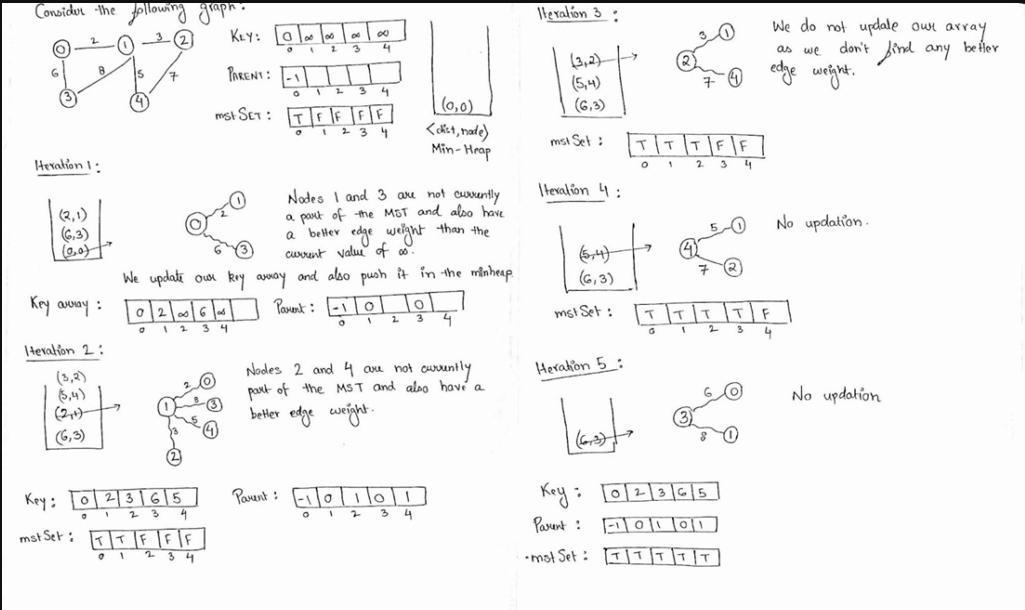 Consider the following graph:
0 2 1 3 2
6 8 5 7
3 4
KEY: 0 ∞ ∞ ∞ ∞
0 1 2 3 4
PARENT: -1
0 1 2 3 4
mst SET: T F F F F
0 1 2 3 4
(0,0)
<dist, node>
Min-Heap
Iteration 1:
(2,1)
(6,3)
(0,0)
0 2 1
6 3
Nodes 1 and 3 are not currently
a part of the MST and also have
a better edge weight than the
current value of ∞.
We update our key array and also push it in the minheap
Key array: 0 2 ∞ 6 ∞
0 1 2 3 4
Parent: -1 0 0
0 1 2 3 4
Iteration 2:
(3,2)
(5,4)
(2,1)
(6,3)
1 2 0
8 3
5 4
3
2
Nodes 2 and 4 are not currently
part of the MST and also have a
better edge weight.
Key: 0 2 3 6 5
0 1 2 3 4
Parent: -1 0 1 0 1
0 1 2 3 4
mst Set: T T F F F
0 1 2 3 4
Iteration 3:
(3,2)
(5,4)
(6,3)
2 3 1
7 4
We do not update our array
as we don't find any better
edge weight.
mst Set: T T T F F
0 1 2 3 4
Iteration 4:
(5,4)
(6,3)
4 5 1
7 2
No updation.
mst Set: T T T T F
0 1 2 3 4
Iteration 5:
(6,3)
3 6 0
8 1
No updation
Key: 0 2 3 6 5
Parent: -1 0 1 0 1
mst Set: T T T T T